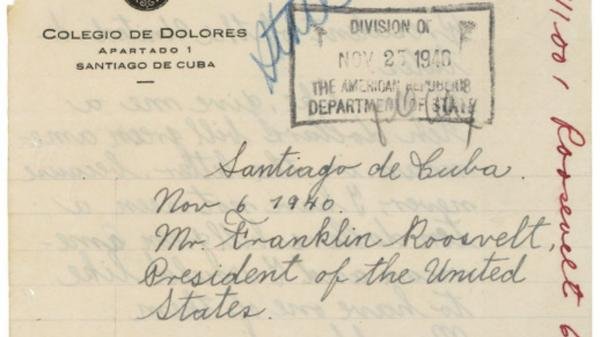 COLEGIO DE DOLORES
APARTADO 1
SANTIAGO DE CUBA
State
DIVISION OF
NOV 27 1940
THE AMERICAN REPUBLICS
DEPARTMENT OF STATE
Santiago de Cuba.
Nov 6 1940.
Mr. Franklin Roosvelt,
President of the United
States.
Roosevelt